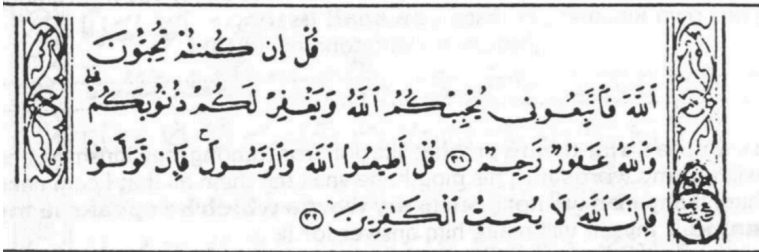 قُلْ إِن كُنتُمْ تُحِبُّونَ
ٱللَّهَ فَٱتَّبِعُونِى يُحْبِبْكُمُ ٱللَّهُ وَيَغْفِرْ لَكُمْ ذُنُوبَكُمْ ۗ
وَٱللَّهُ غَفُورٌ رَّحِيمٌ ٣١ قُلْ أَطِيعُوا۟ ٱللَّهَ وَٱلرَّسُولَ ۖ فَإِن تَوَلَّوْا۟
فَإِنَّ ٱللَّهَ لَا يُحِبُّ ٱلْكَٰفِرِينَ ٣٢